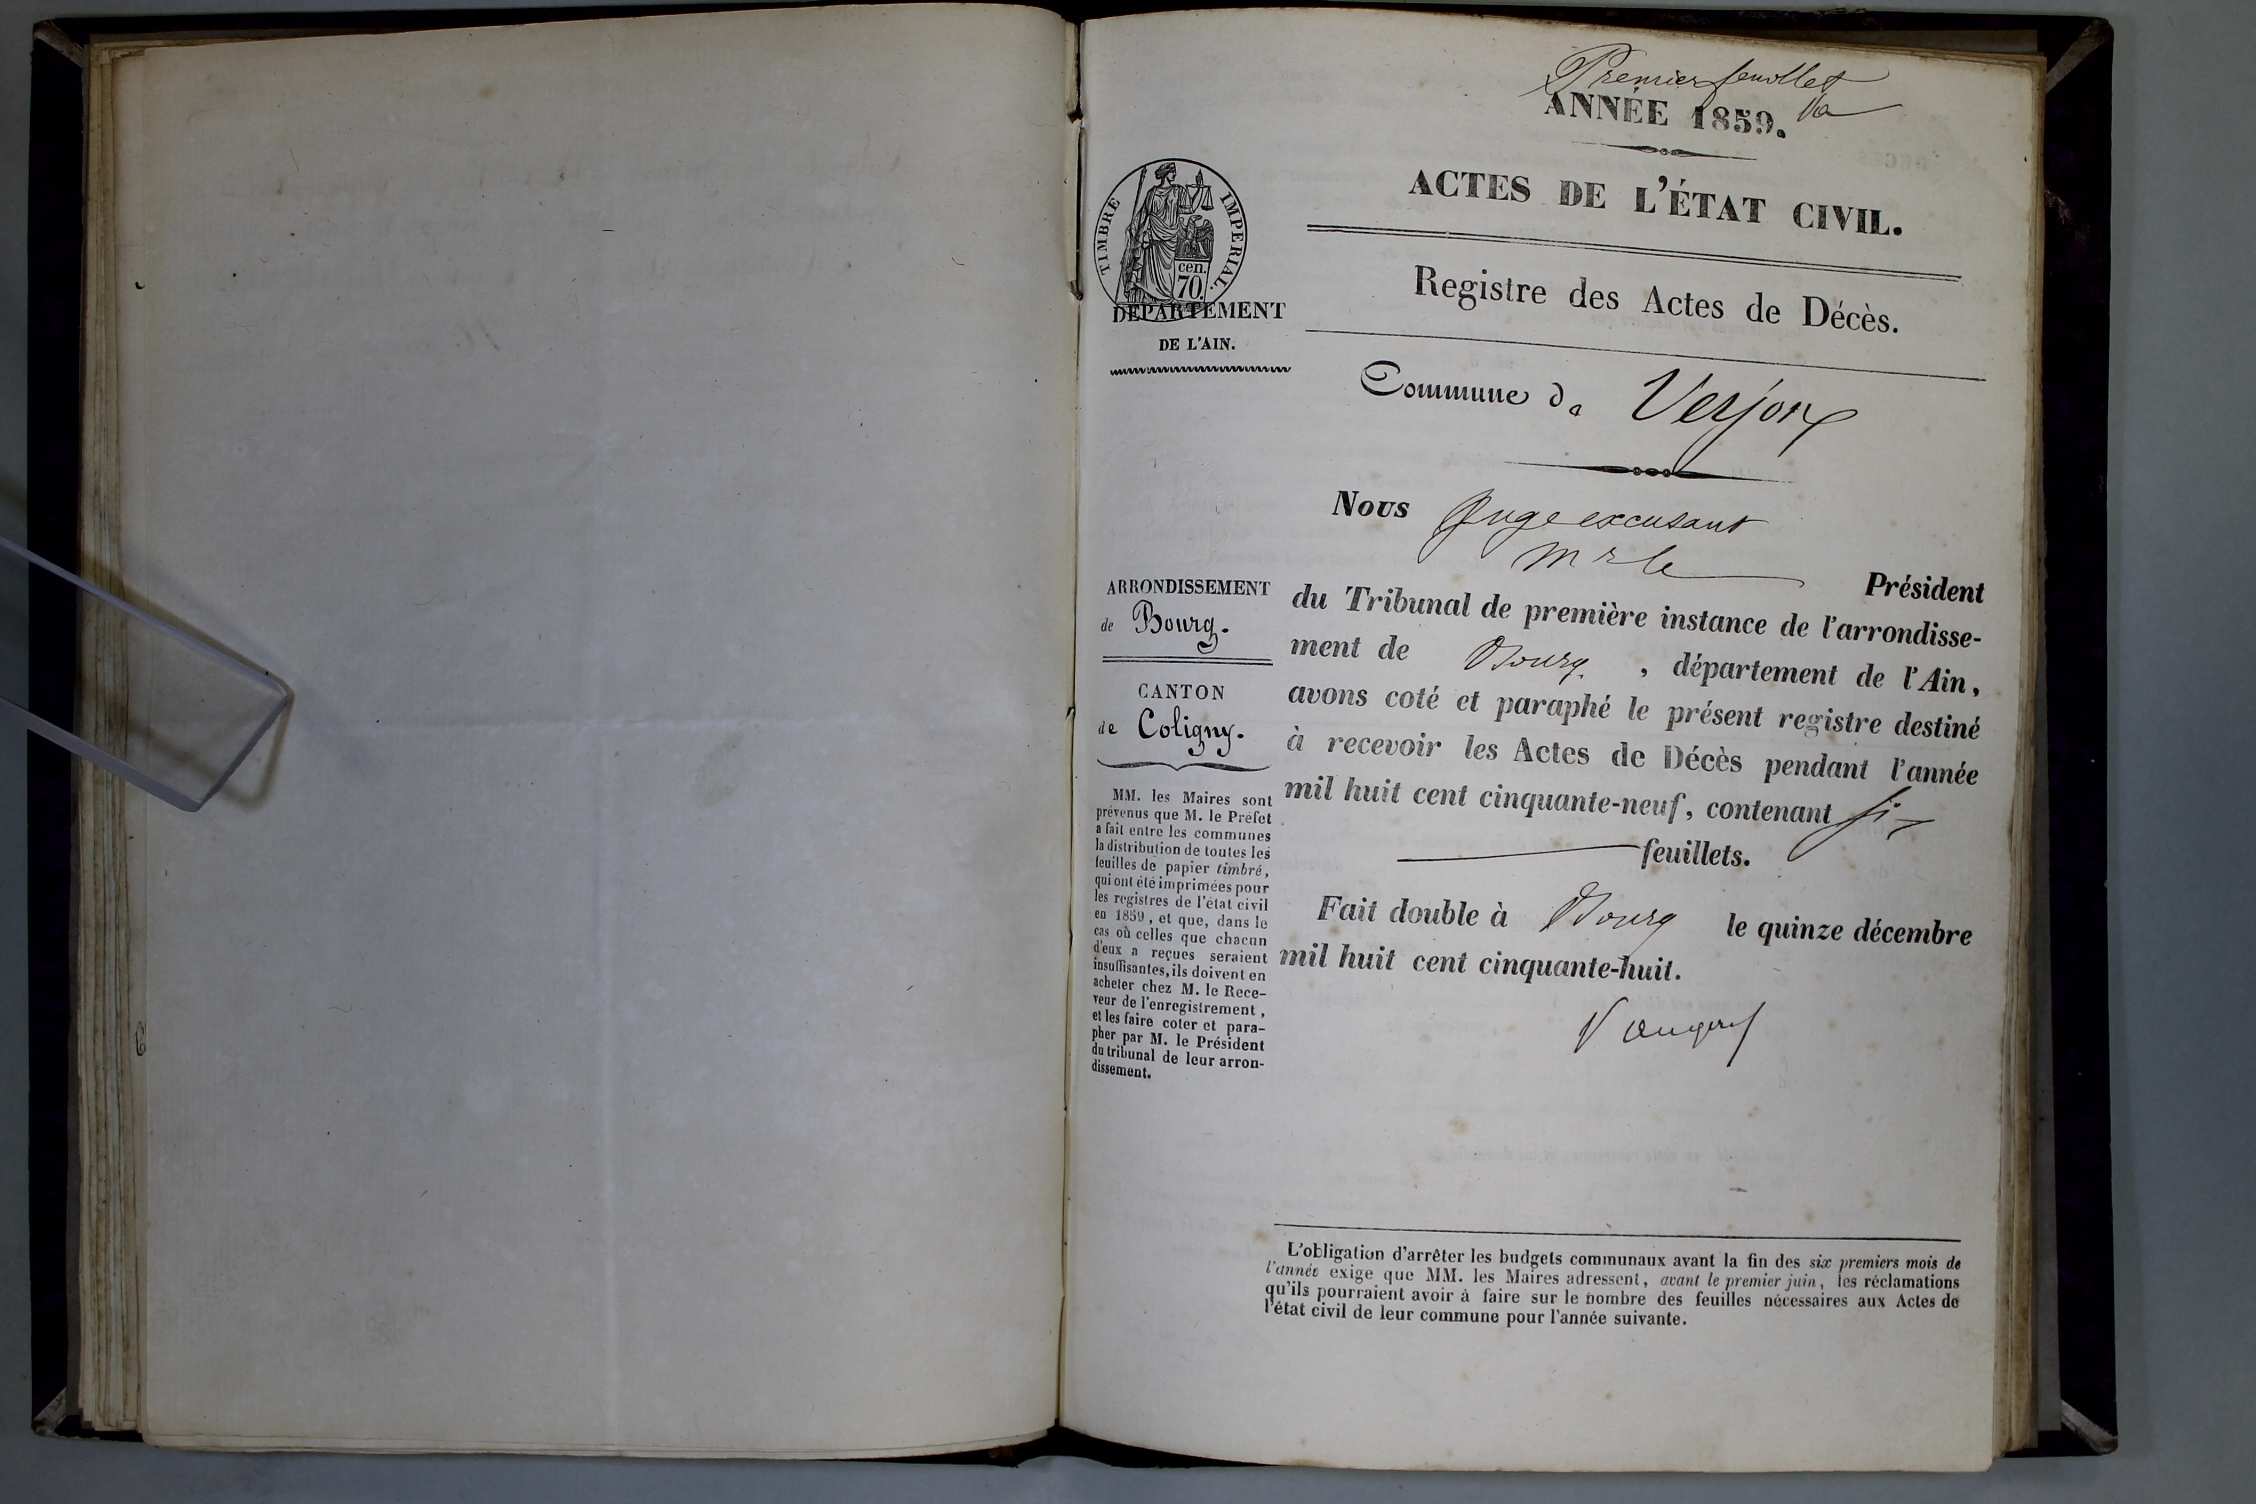 Premier feuillet
Va
ANNÉE 1859.
ACTES DE L'ÉTAT CIVIL.
Registre des Actes de Décès.
TIMBRE IMPERIAL.
cen.
70.
DÉPARTEMENT
DE L'AIN.
Commune de Verjon
Nous Juge excusant
Mr le Président
du Tribunal de première instance de l'arrondisse-
ment de Bourg, département de l'Ain,
avons coté et paraphé le présent registre destiné
à recevoir les Actes de Décès pendant l'année
mil huit cent cinquante-neuf, contenant six
feuillets.
Fait double à Bourg le quinze décembre
mil huit cent cinquante-huit.
ARRONDISSEMENT
de Bourg.
CANTON
de Coligny.
MM. les Maires sont
prévenus que M. le Préfet
a fait entre les communes
la distribution de toutes les
feuilles de papier timbré,
qui ont été imprimées pour
les registres de l'état civil
en 1859, et que, dans le
cas où celles que chacun
d'eux a reçues seraient
insuffisantes, ils doivent en
acheter chez M. le Rece-
veur de l'enregistrement,
et les faire coter et para-
pher par M. le Président
du tribunal de leur arron-
dissement.
L'obligation d'arrêter les budgets communaux avant la fin des six premiers mois de
l'année exige que MM. les Maires adressent, avant le premier juin, les réclamations
qu'ils pourraient avoir à faire sur le nombre des feuilles nécessaires aux Actes de
l'état civil de leur commune pour l'année suivante.